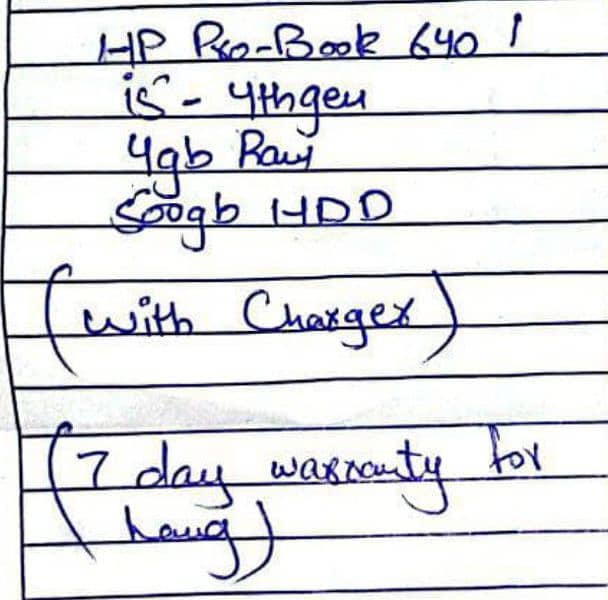 HP Pro-Book 640 1
i5 - 4thgen
4gb Ram
500gb HDD
(with Charger)
(7 day warranty for
hang)